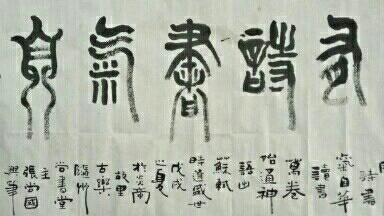 有詩書氣自
詩書
氣自華
讀書
萬卷
始通神
語出
蘇軾
時逢盛世
戊戌
之夏
於炎南
故里
古樂
隨州
尚書堂
主
張尚國